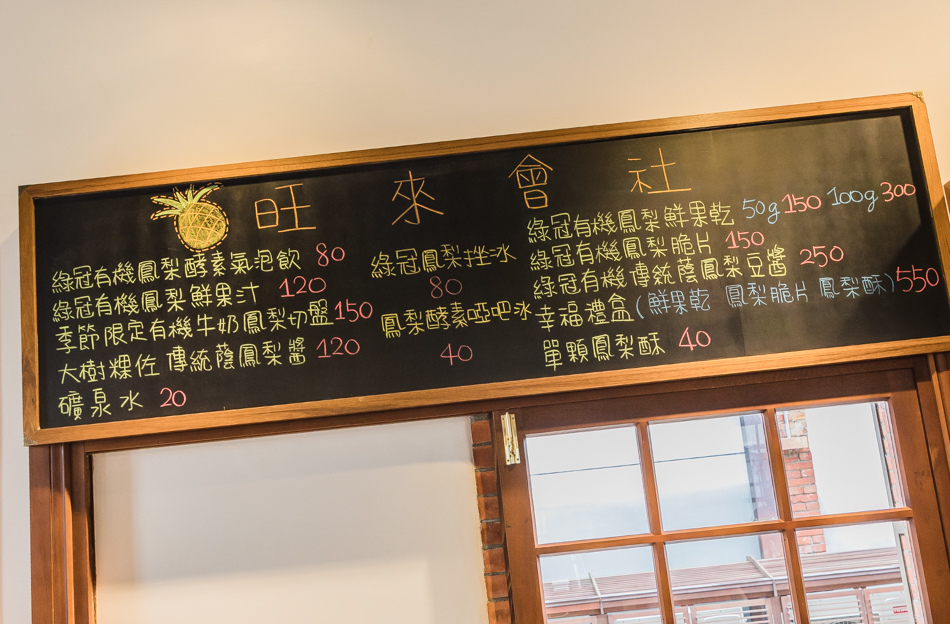 旺來會社
綠冠有機鳳梨酵素氣泡飲 80
綠冠有機鳳梨鮮果汁 120
季節限定有機牛奶鳳梨切盤150
大樹粿佐 傳統蔭鳳梨醬 120
礦泉水 20
綠冠鳳梨挫冰
80
鳳梨酵素啞吧冰
40
綠冠有機鳳梨鮮果乾 50g150 100g300
綠冠有機鳳梨脆片 150
綠冠有機傳統蔭鳳梨豆醬 250
幸福禮盒(鮮果乾 鳳梨脆片 鳳梨酥)550
單顆鳳梨酥 40